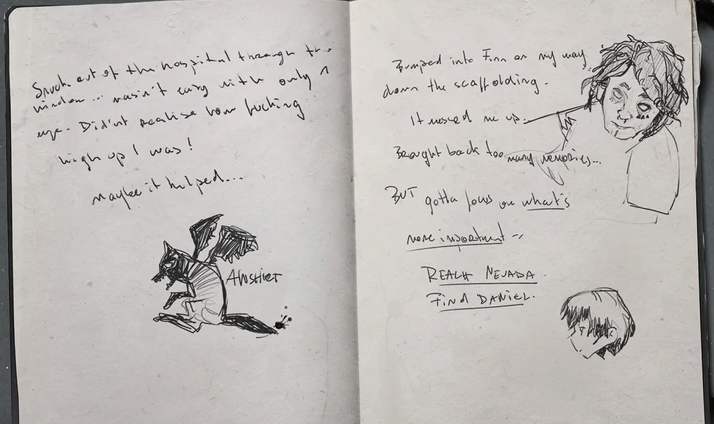 Snuck out of the hospital through the
window... wasn't easy with only 1
eye. Didn't realise how fucking
high up I was!
Maybe it helped...
Bumped into Finn on my way
down the scaffolding.
It messed me up.
Brought back too many memories...
BUT gotta focus on what's
more important --
REACH NEVADA.
FIND DANIEL.